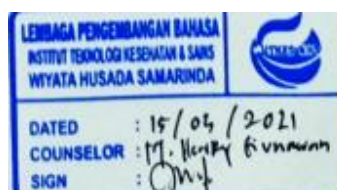 LEMBAGA PENGEMBANGAN BAHASA
INSTITUT TEKNOLOGI KESEHATAN & SAINS
WIYATA HUSADA SAMARINDA
DATED : 15/04/2021
COUNSELOR : M. Henky
SIGN :